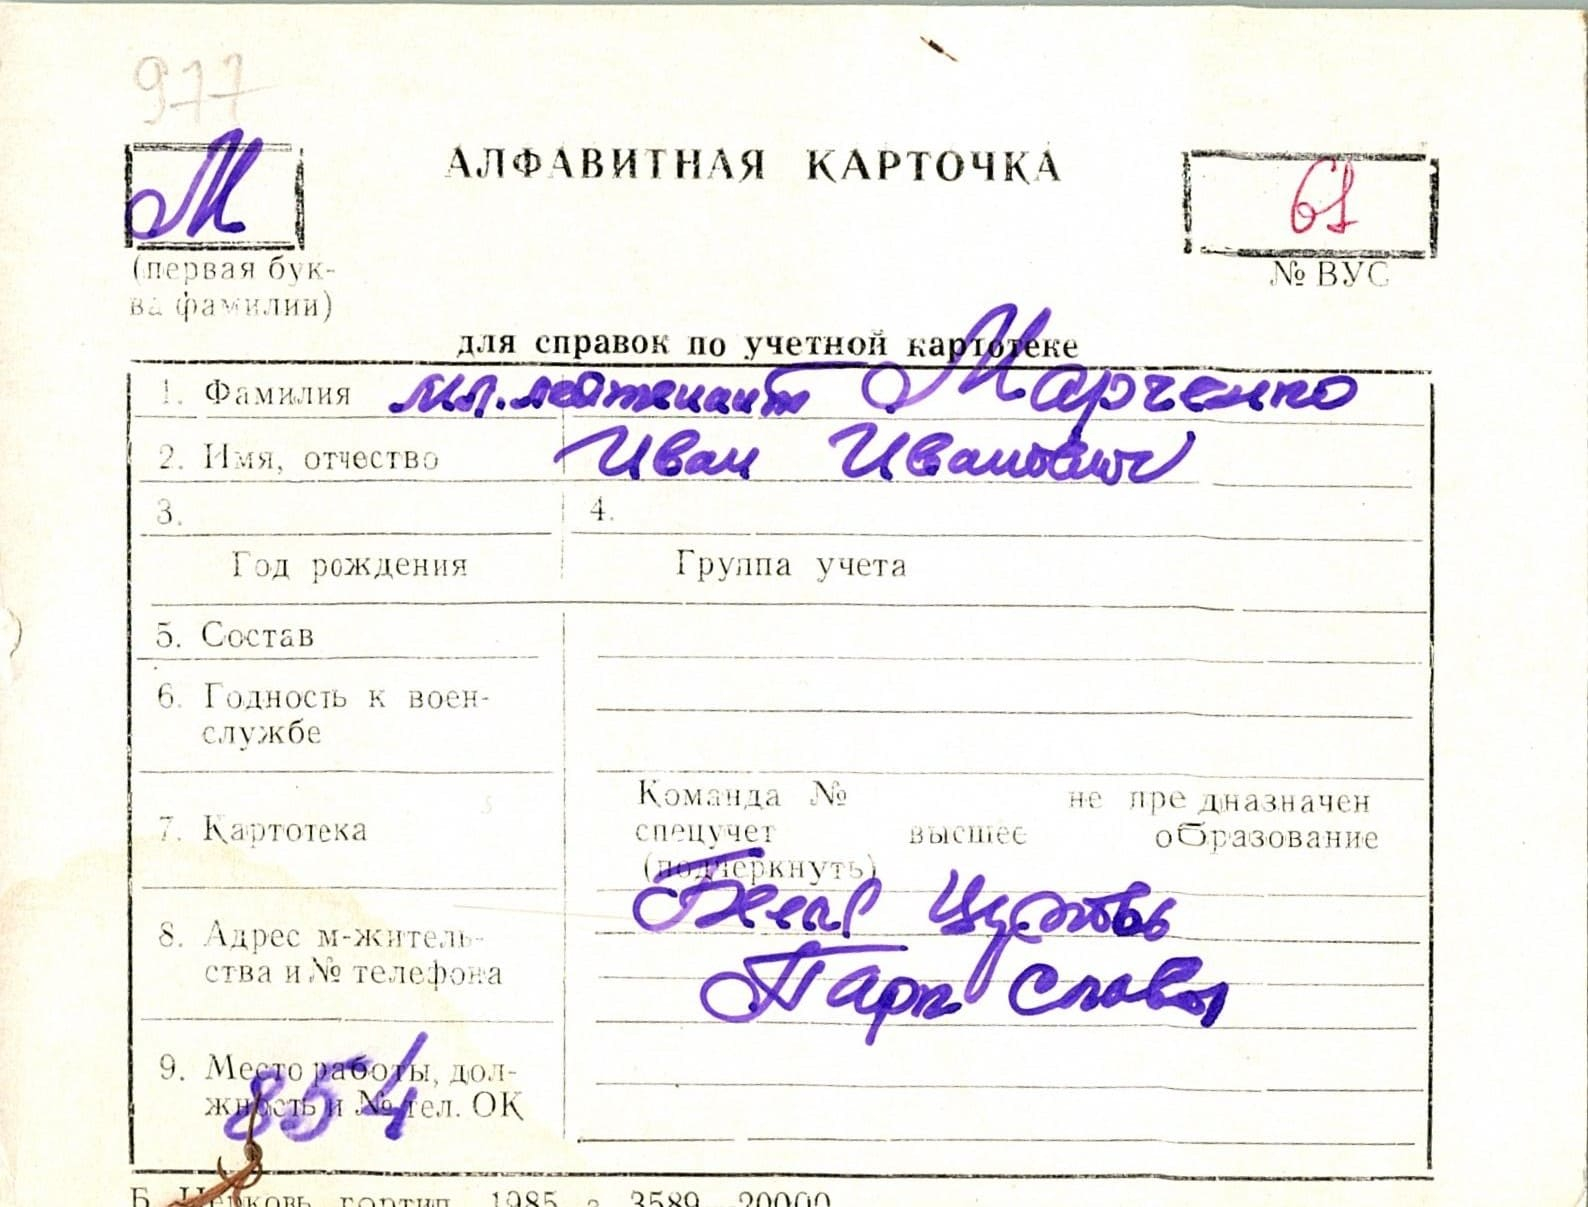 977
М
АЛФАВИТНАЯ КАРТОЧКА
61
(первая бук-
ва фамилии)
№ ВУС
для справок по учетной картотеке
1. Фамилия мл. лейтенант Марченко
2. Имя, отчество Иван Иванович
3. 4.
Год рождения Группа учета
5. Состав
6. Годность к воен-
службе
7. Картотека
Команда № не предназначен
спецучет высшее образование
(подчеркнуть)
8. Адрес м-житель-
ства и № телефона
Белая Церковь
Парк Славы
9. Место работы, дол-
жность и № тел. ОК
854
Б. Церковь гортип. 1985 з. 3589—20000